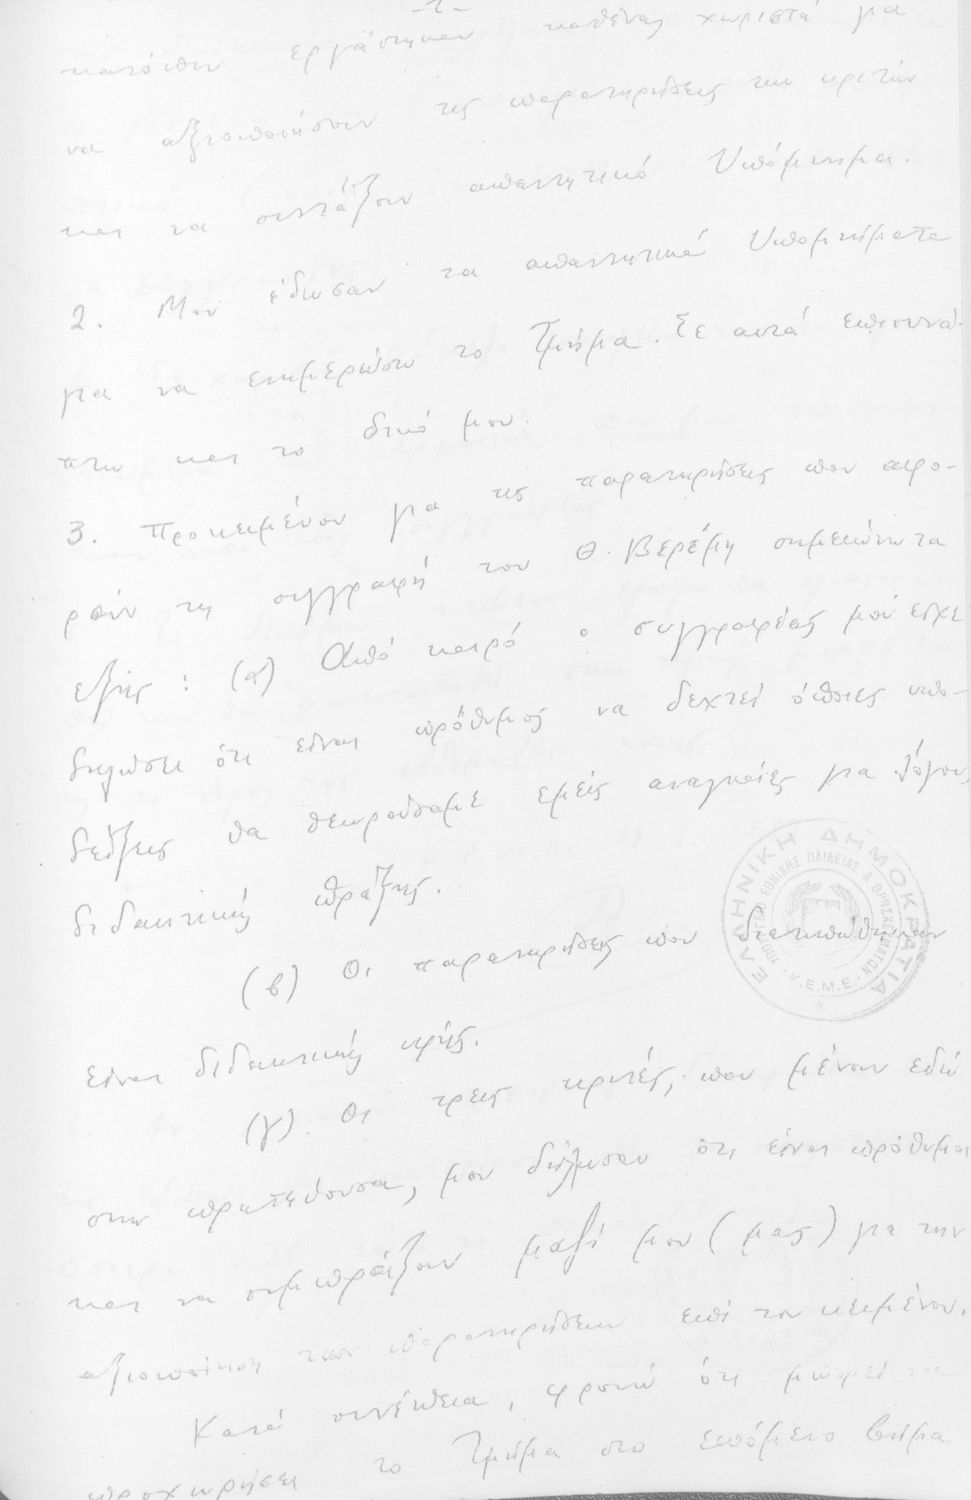 κατόπιν εργάστηκαν καθένας χωριστά για
να αξιοποιήσουν τις παρατηρήσεις των κριτών
και να συντάξουν απαντητικό Υπόμνημα.
2. Μου έδωσαν τα απαντητικά Υπομνήματα
για να ενημερώσω το Τμήμα. Σε αυτά επισυνά-
πτω και το δικό μου.
3. Προκειμένου για τις παρατηρήσεις που αφο-
ρούν τη συγγραφή του Θ. Βερέμη σημειώνω τα
εξής: (α) Από καιρό ο συγγραφέας μού είχε
δηλώσει ότι είναι πρόθυμος να δεχτεί όποιες υπο-
δείξεις θα θεωρούσαμε εμείς αναγκαίες για λόγους
διδακτικής πράξης.
(β) Οι παρατηρήσεις που διατυπώθηκαν
είναι διδακτικής υφής.
(γ) Οι τρεις κριτές, που μένουν εδώ
στην πρωτεύουσα, μου δήλωσαν ότι είναι πρόθυμοι
και να συμπράξουν μαζί μου (μας) για την
αξιοποίηση των παρατηρήσεων επί του κειμένου.
Κατά συνέπεια, φρονώ ότι μπορεί να
προχωρήσει το Τμήμα στο επόμενο βήμα
ΕΛΛΗΝΙΚΗ ΔΗΜΟΚΡΑΤΙΑ
ΥΠΟΥΡΓΕΙΟ ΕΘΝΙΚΗΣ ΠΑΙΔΕΙΑΣ & ΘΡΗΣΚΕΥΜΑΤΩΝ
Κ.Ε.Μ.Ε.